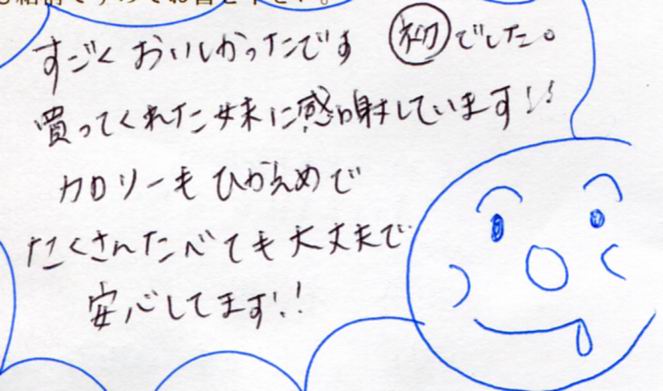 すごくおいしかったです 初でした。
買ってくれた妹に感射しています!!
カロリーもひかえめで
たくさんたべても大丈夫で
安心してます!!